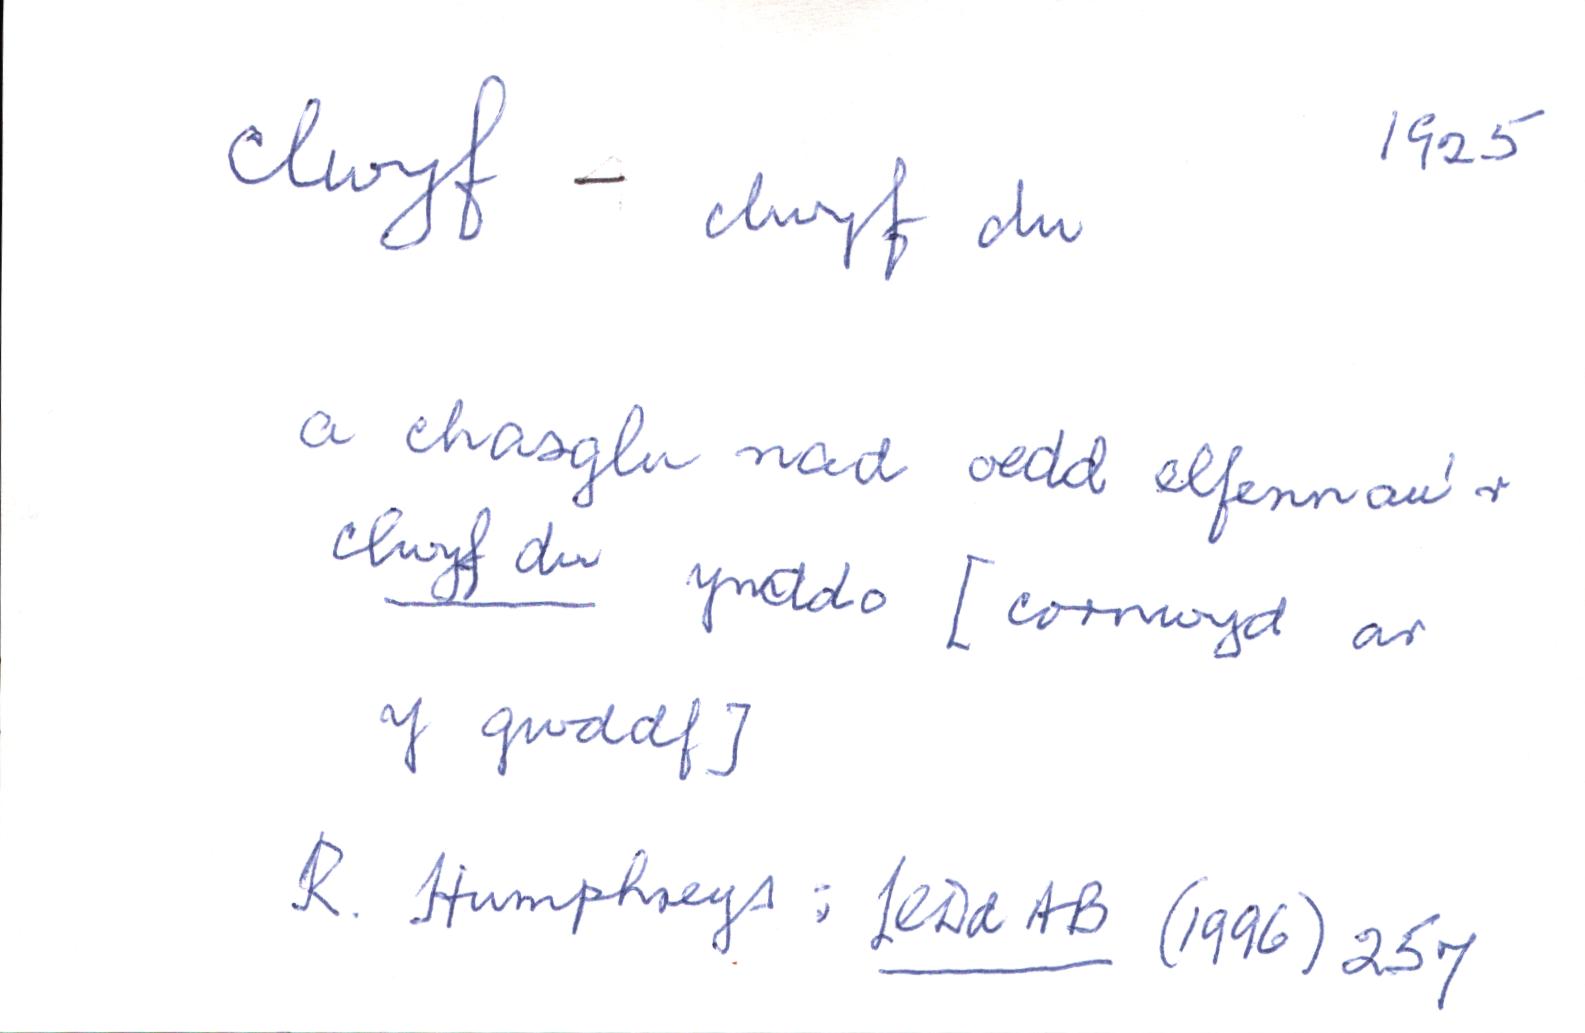 clwyf - clwyf du 1925
a chasglu nad oedd elfennau'r
clwyf du ynddo [cornwyd ar
y gwddf]
R. Humphreys: (1996) 257